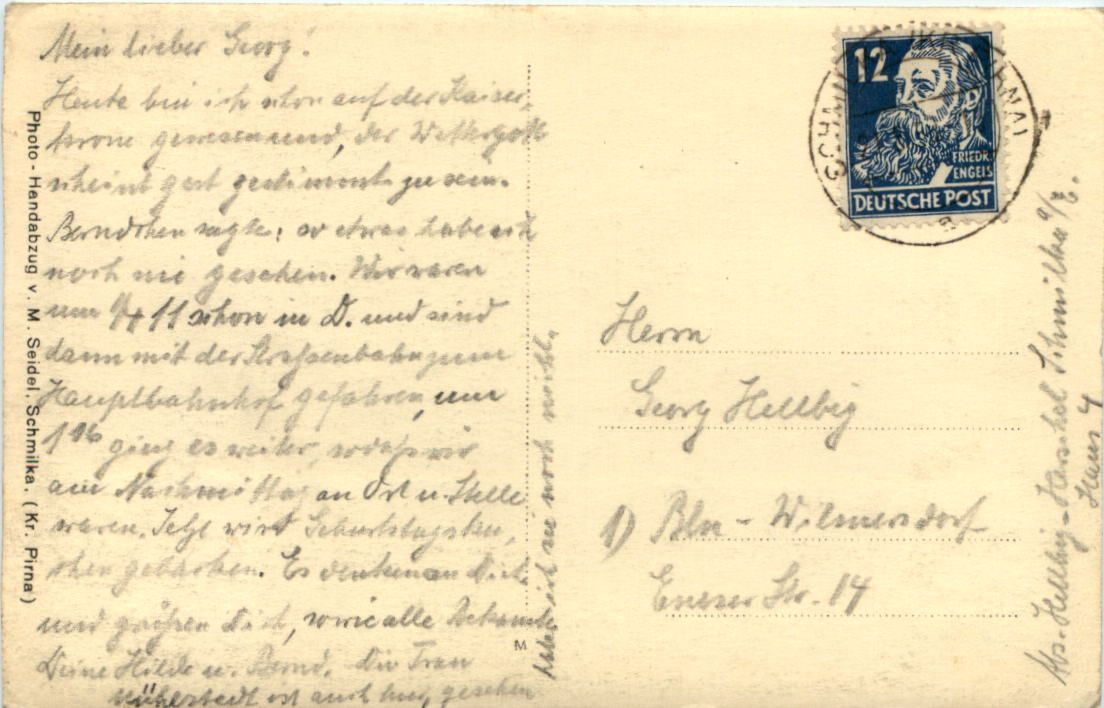 Mein lieber Georg!
Heute bin ich schon auf der Kaiser,
krone gewesen und, der Wettergott
scheint gut gestimmt zu sein.
Berndchen sagte: so etwas habe ich
noch nie gesehen. Wir waren
um 1/4 11 schon in D. und sind
dann mit der Strassenbahn zum
Hauptbahnhof gefahren, um
1 06 ging es weiter, sodass wir
am Nachmittag an Ort u. Stelle
waren. Jetzt wird Geburtstagsku,
chen gebacken. Es denken an Dich
und grüßen Dich, sowie alle Bekannte
Deine Hilde u. Bernd. Die Frau
ist auch hier, gesehen
habe ich sie noch nicht.
Photo - Handabzug v. M. Seidel, Schmilka. (Kr. Pirna)
M
12
FRIEDR.
ENGELS
DEUTSCHE POST
SCHMILKA PIRNA)
a
Herrn
Georg Hellbig
1) Bln - Wilmersdorf
Str. 14
Abs. Hellbig Schmilka a/E.
Haus 4